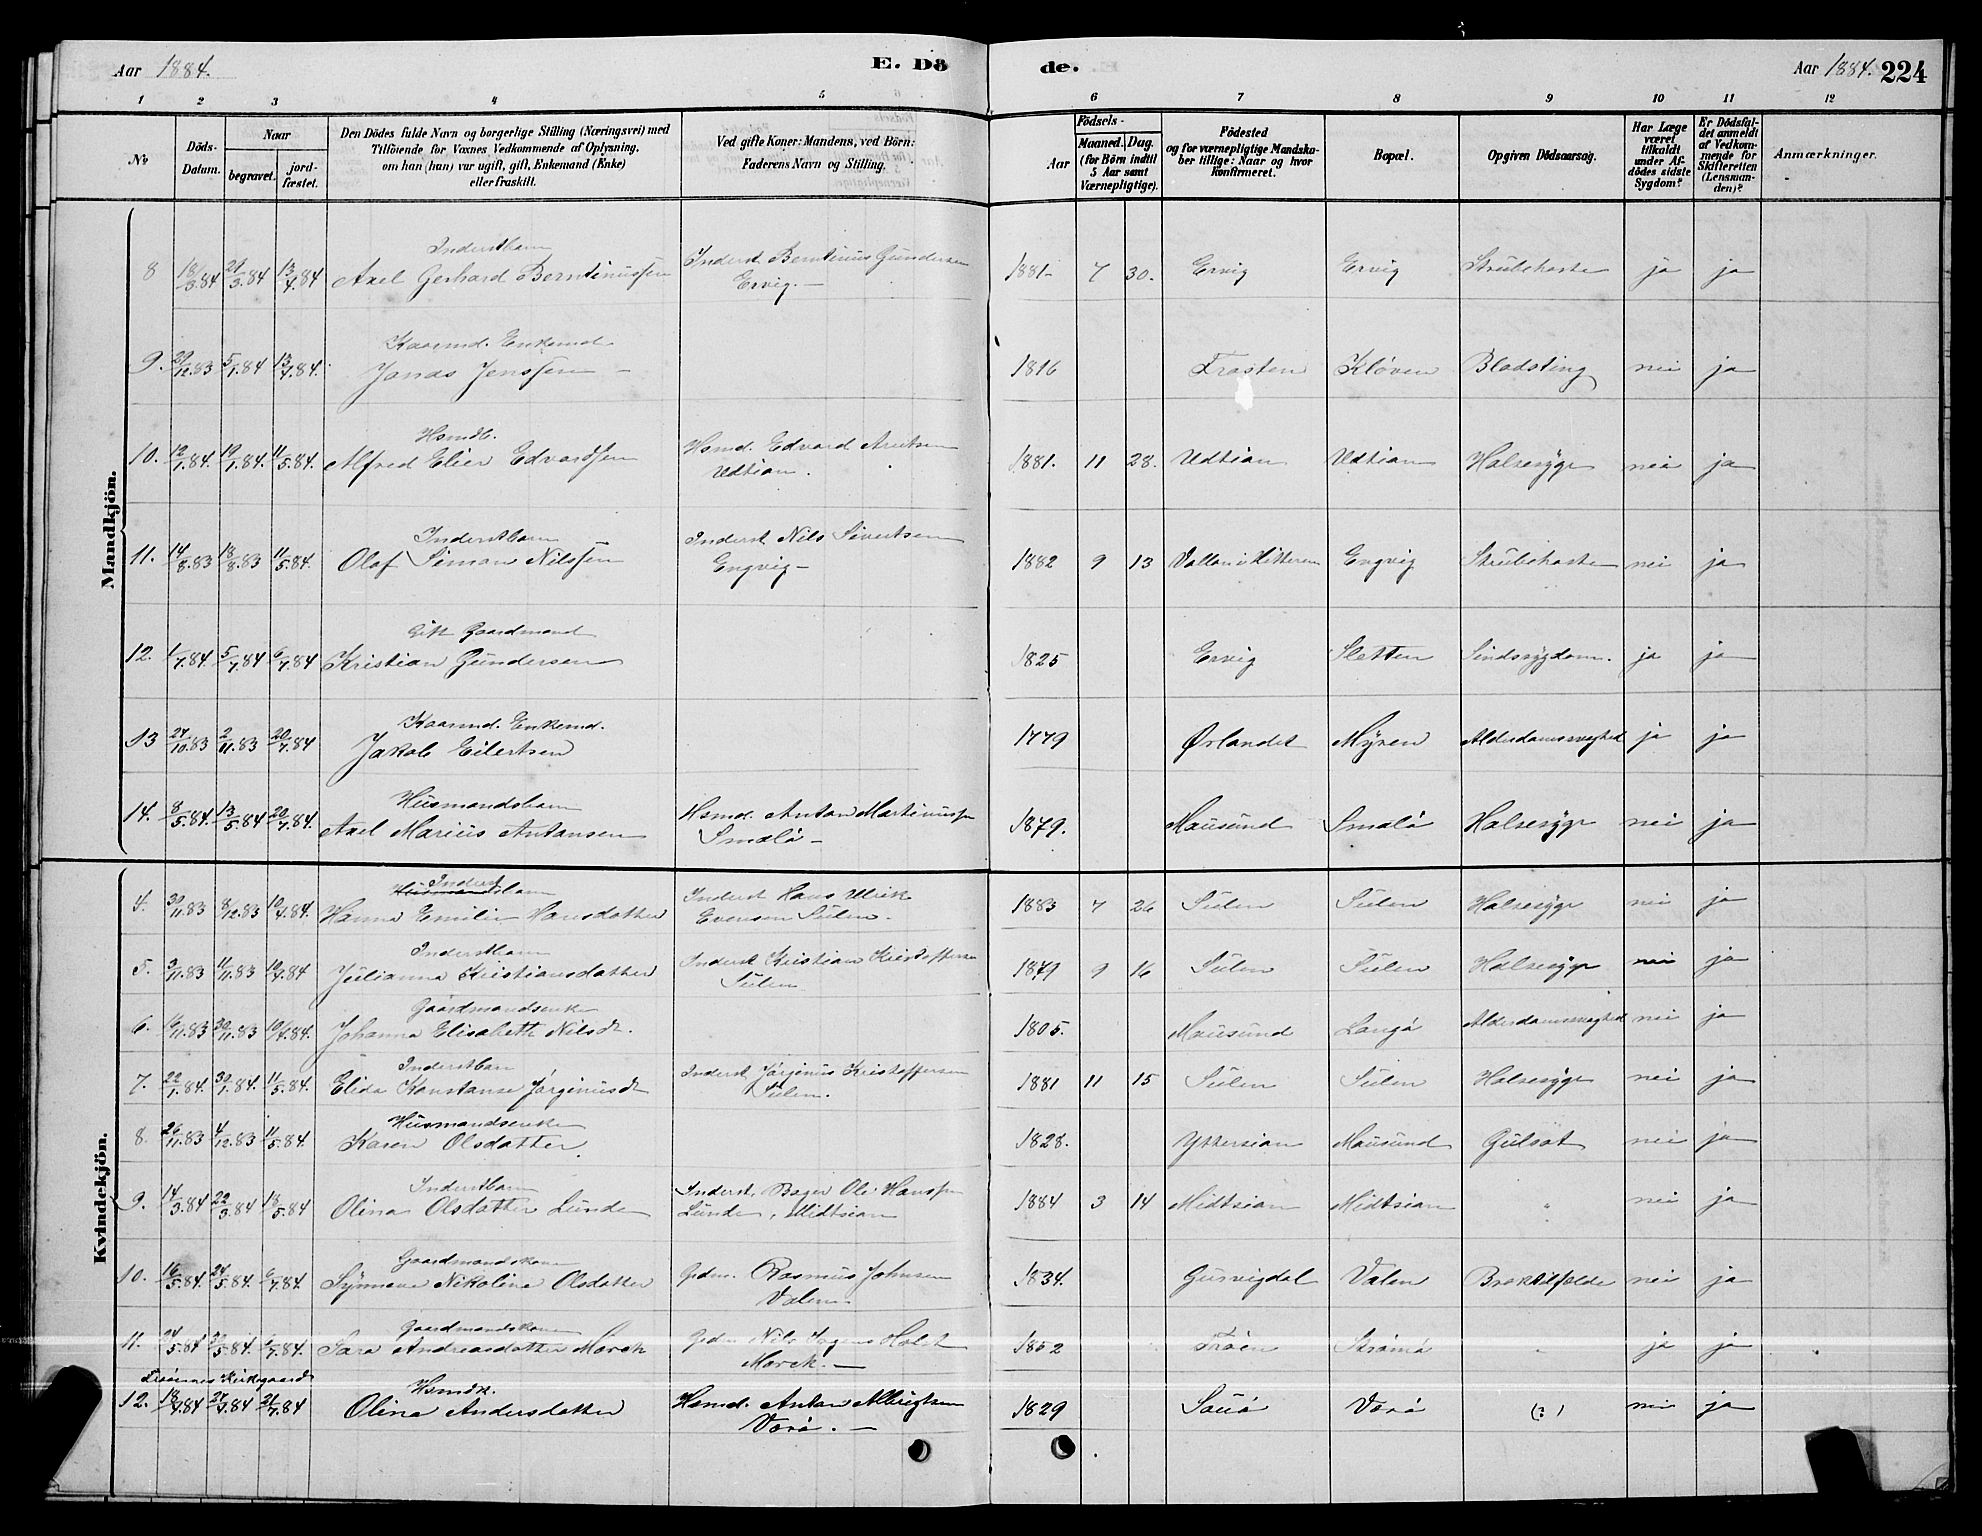 Aar 1884.
E. Dö
de.
Aar 1884. 224
1 2 3 4 5 6 7 8 9 10 11 12
No
Döds-
Datum.
Naar
begravet.
jord-
fæstet.
Den Dödes fulde Navn og borgerlige Stilling (Næringsvei) med
Tilföiende for Voxnes Vedkommende af Oplysning,
om han (hun) var ugift, gift, Enkemand (Enke)
eller fraskilt.
Ved gifte Koner: Mandens, ved Börn:
Faderens Navn og Stilling.
Födsels-
Aar
Maaned.
Dag.
(for Börn indtil
5 Aar samt
Værnepligtige).
Födested
og for værnepligtige Mandska-
ber tillige: Naar og hvor
konfirmeret.
Bopæl.
Opgiven Dödsaarsag.
Har Læge
været
tilkaldt
under Af-
dödes sidste
Sygdom?
Er Dödsfal-
det anmeldt
af Vedkom-
mende for
Skifteretten
(Lensman-
den)?
Anmærkninger.
Mandkjön.
Inderstbarn
8 18/3.84 21/3.84 13/4.84 Axel Gerhard Berntinussen Inderst Berntinus Gundersen 1881 7 30. Ervig Ervig Strubehoste ja ja
Ervig.
Kaarmd. Enkemd
9. 29/12.83 5/1.84 13/4.84. Jonas Jenssen 1816 Frosten Kløven Blodsting nei ja
Hsmdb.
10. 12/1.84. 19/1.84. 11/5.84. Alfred Elier Edvardsen Hsmd. Edvard Arntsen 1881. 11 28. Udtian Udtian Halsesyge nei ja
Udtian.
Inderstbarn
11. 14/8.83 18/8.83 11/5.84. Olaf Simon Nilssen Inderst Nils Sivertsen 1882 9 13 i Hitteren Engvig Strubehoste nei ja
Engvig
Gift Gaardmand
12. 1/7.84. 5/7.84 6/7.84 Kristian Gundersen 1825 Ervig Sletten Sindssygdom. ja ja
Kaarmd. Enkemd.
13 27/10.83 2/11.83 20/7.84 Jakob Eilertsen 1779 Ørlandet Myren Alderdomssvaghed ja ja
Husmandsbarn
14. 8/5.84. 13/5.84 20/7.84 Axel Marius Antonsen Hsmd. Anton Martinussen 1879. Mausund Smalö Halsesyge nei ja
Smalö
Kvindekjön.
Inderst
Husmandsbarn
4. 30/11.83 8/12.83 10/4.84. Hanna Emilie Hansdatter Inderst Hans Ulrik 1883 7 26 Sulen Sulen Halsesyge nei ja
Evensen Sulen.
Inderstbarn
5. 3/11.83 11/11.83 10/4.84 Julianna Kristiansdatter Inderst Kristian Kristoffersen 1879 9 16 Sulen Sulen Halsesyge nei ja
Sulen
Gaardmandsenke
6. 16/11.83 30/11.83 10/4.84. Johanna Elisabeth Nilsdt. 1805. Mausund Langö Alderdomssvaghed nei ja
Inderstbarn
7. 22/1.84. 30/1.84. 11/5.84. Elida Konstanse Jørginusdt Inderst Jørginus Kristoffersen 1881 11 15 Sulen Sulen Halsesyge nei ja
Sulen.
Husmandsenke
8. 26/11.83 4/12.83 11/5.84. Karen Olsdatter. 1828. Yttersian Mausund Gulsot nei ja
Inderstbarn
9. 14/3.84 22/3.84 18/5.84 Olina Olsdatter Lunde Inderst, Bager Ole Hanssen 1884 3 14 Midtsian Midtsian " nei ja
Lunde, Midtsian
Gaardmandskone
10. 16/5.84. 24/5.84. 6/7.84. Synnave Nikoline Olsdatter Gdm. Rasmus Johnsen 1834. Gurvigdal Valen Brøktilfælde nei ja
Valen.
Gaardmandskone
11. 24/5.84 5.84. 7.84. Sara Andreasdatter Morch Gdm Nils Holst 1852 Frøen Strömö " ja ja
Morch.
Kirkegaard
Hsmdk.
12. 18/4.84 27/4.84 21/7.84 Olina Andersdatter Hsmd. Anton Albrigtsen 1829 Sauö Vorö (?) nei ja
Vorö.